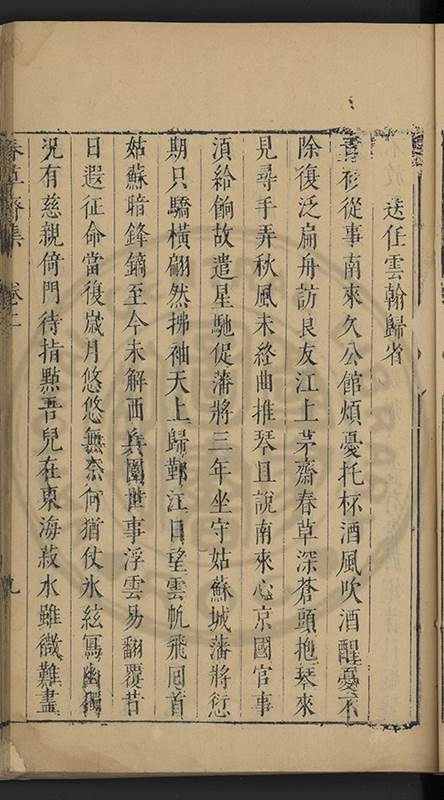 送任雲翰歸省
青衫從事南來久公館煩憂托杯酒風吹酒醒憂不
除復泛扁舟訪良友江上茅齋春草深蒼頭抱琴來
見尋手弄秋風未終曲推琴且說南來心京國官事
須給餉故遣星馳促藩將三年坐守姑蘇城藩將愆
期只驕橫翩然拂袖天上歸鄞江日望雲帆飛囘首
姑蘇暗鋒鏑至今未解西兵圍世事浮雲易翻覆苦
日遐征命當復歲月悠悠無奈何猶仗氷絃寫幽獨
况有慈親倚門待指點吾兒在東海菽水雖微難盡
春草齋集
卷二
九